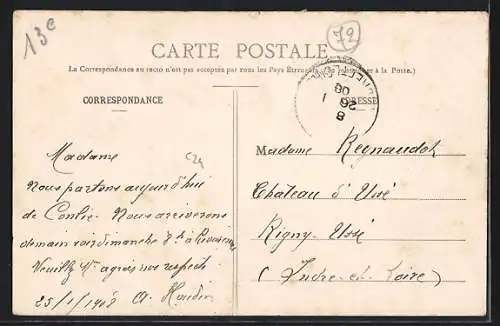 13e
72
CARTE POSTALE
(La Correspondance au recto n'est pas acceptée par tous les Pays Étrangers. à la Poste.)
CORRESPONDANCE
ADRESSE
8
26 1
08
Madame
Nous partons aujourd'hui
de Conlie. Nous arriverons
demain soir dimanche 8h à
Veuillez agréer nos respects
25/1/1908 A. Houdin
Madame Regnaudot
Chateau d'Ussé
Rigny-Ussé
(Indre-et-Loire)